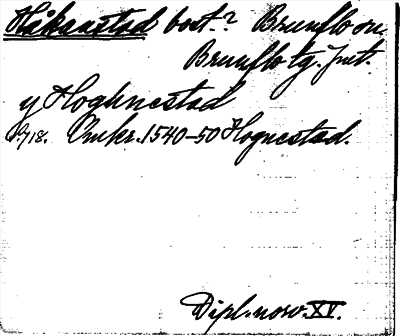 Håkanstad bort.? Brunflo sn.
Brunflo tg. Jmt.
y Hoghnestad
s. 718. Omkr. 1540-50 Hognestad.
Dipl. norv. XV.